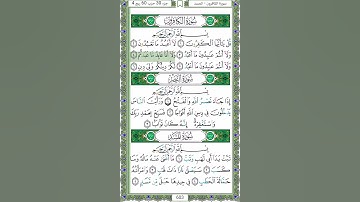 سورة الكافرون - المسد
جزء 30 حزب 60 ربع 4
سُورَةُ الكَافِرُونَ
بِسْمِ اللَّهِ الرَّحْمَٰنِ الرَّحِيمِ
قُلْ يَٰٓأَيُّهَا الْكَٰفِرُونَ ١ لَآ أَعْبُدُ مَا تَعْبُدُونَ ٢
وَلَآ أَنتُمْ عَٰبِدُونَ مَآ أَعْبُدُ ٣ وَلَآ أَنَا۠ عَابِدٌ مَّا عَبَدتُّمْ ٤
وَلَآ أَنتُمْ عَٰبِدُونَ مَآ أَعْبُدُ ٥ لَكُمْ دِينُكُمْ وَلِيَ دِينِ ٦
سُورَةُ النَّصْرِ
بِسْمِ اللَّهِ الرَّحْمَٰنِ الرَّحِيمِ
إِذَا جَآءَ نَصْرُ اللَّهِ وَالْفَتْحُ ١ وَرَأَيْتَ النَّاسَ
يَدْخُلُونَ فِي دِينِ اللَّهِ أَفْوَاجًا ٢ فَسَبِّحْ بِحَمْدِ رَبِّكَ
وَاسْتَغْفِرْهُ إِنَّهُ كَانَ تَوَّابًا ٣
سُورَةُ المَسَدِ
بِسْمِ اللَّهِ الرَّحْمَٰنِ الرَّحِيمِ
تَبَّتْ يَدَآ أَبِي لَهَبٍ وَتَبَّ ١ مَآ أَغْنَىٰ عَنْهُ مَالُهُ وَمَا
كَسَبَ ٢ سَيَصْلَىٰ نَارًا ذَاتَ لَهَبٍ ٣ وَامْرَأَتُهُ
حَمَّالَةَ الْحَطَبِ ٤ فِي جِيدِهَا حَبْلٌ مِّن مَّسَدٍ ٥
603